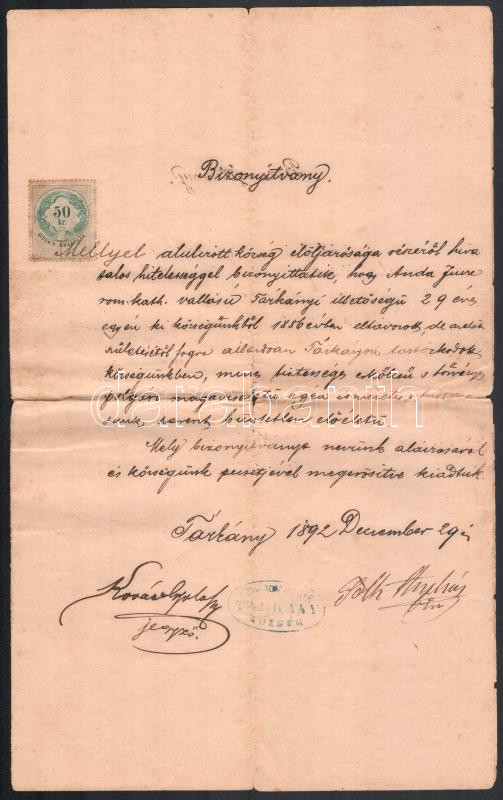 Bizonyítvány.
50
kr.
Mellyel alulirott község elöljárósága részéről hiva
talos hitelességgel bizonyittatik, hogy Anda Imre
rom. kath. vallású Tárkányi illetőségű 29 éves
egyén ki községünkből 1886 évben eltávozott, de azelőtt
születésétől fogva állandóan Tárkányon tartózkodott
községünkben, mint tisztességes
polgári magaviseletű egyén ismeretes,
szerint büntetlen előéletű
Mely bizonyitványt nevünk aláirásával
és községünk pecsétjével megerősitve kiadtuk.
Tárkány 1892 December 29én
Kovács Gyula
jegyző.
TÁRKÁNY
KÖZSÉG
darabanth